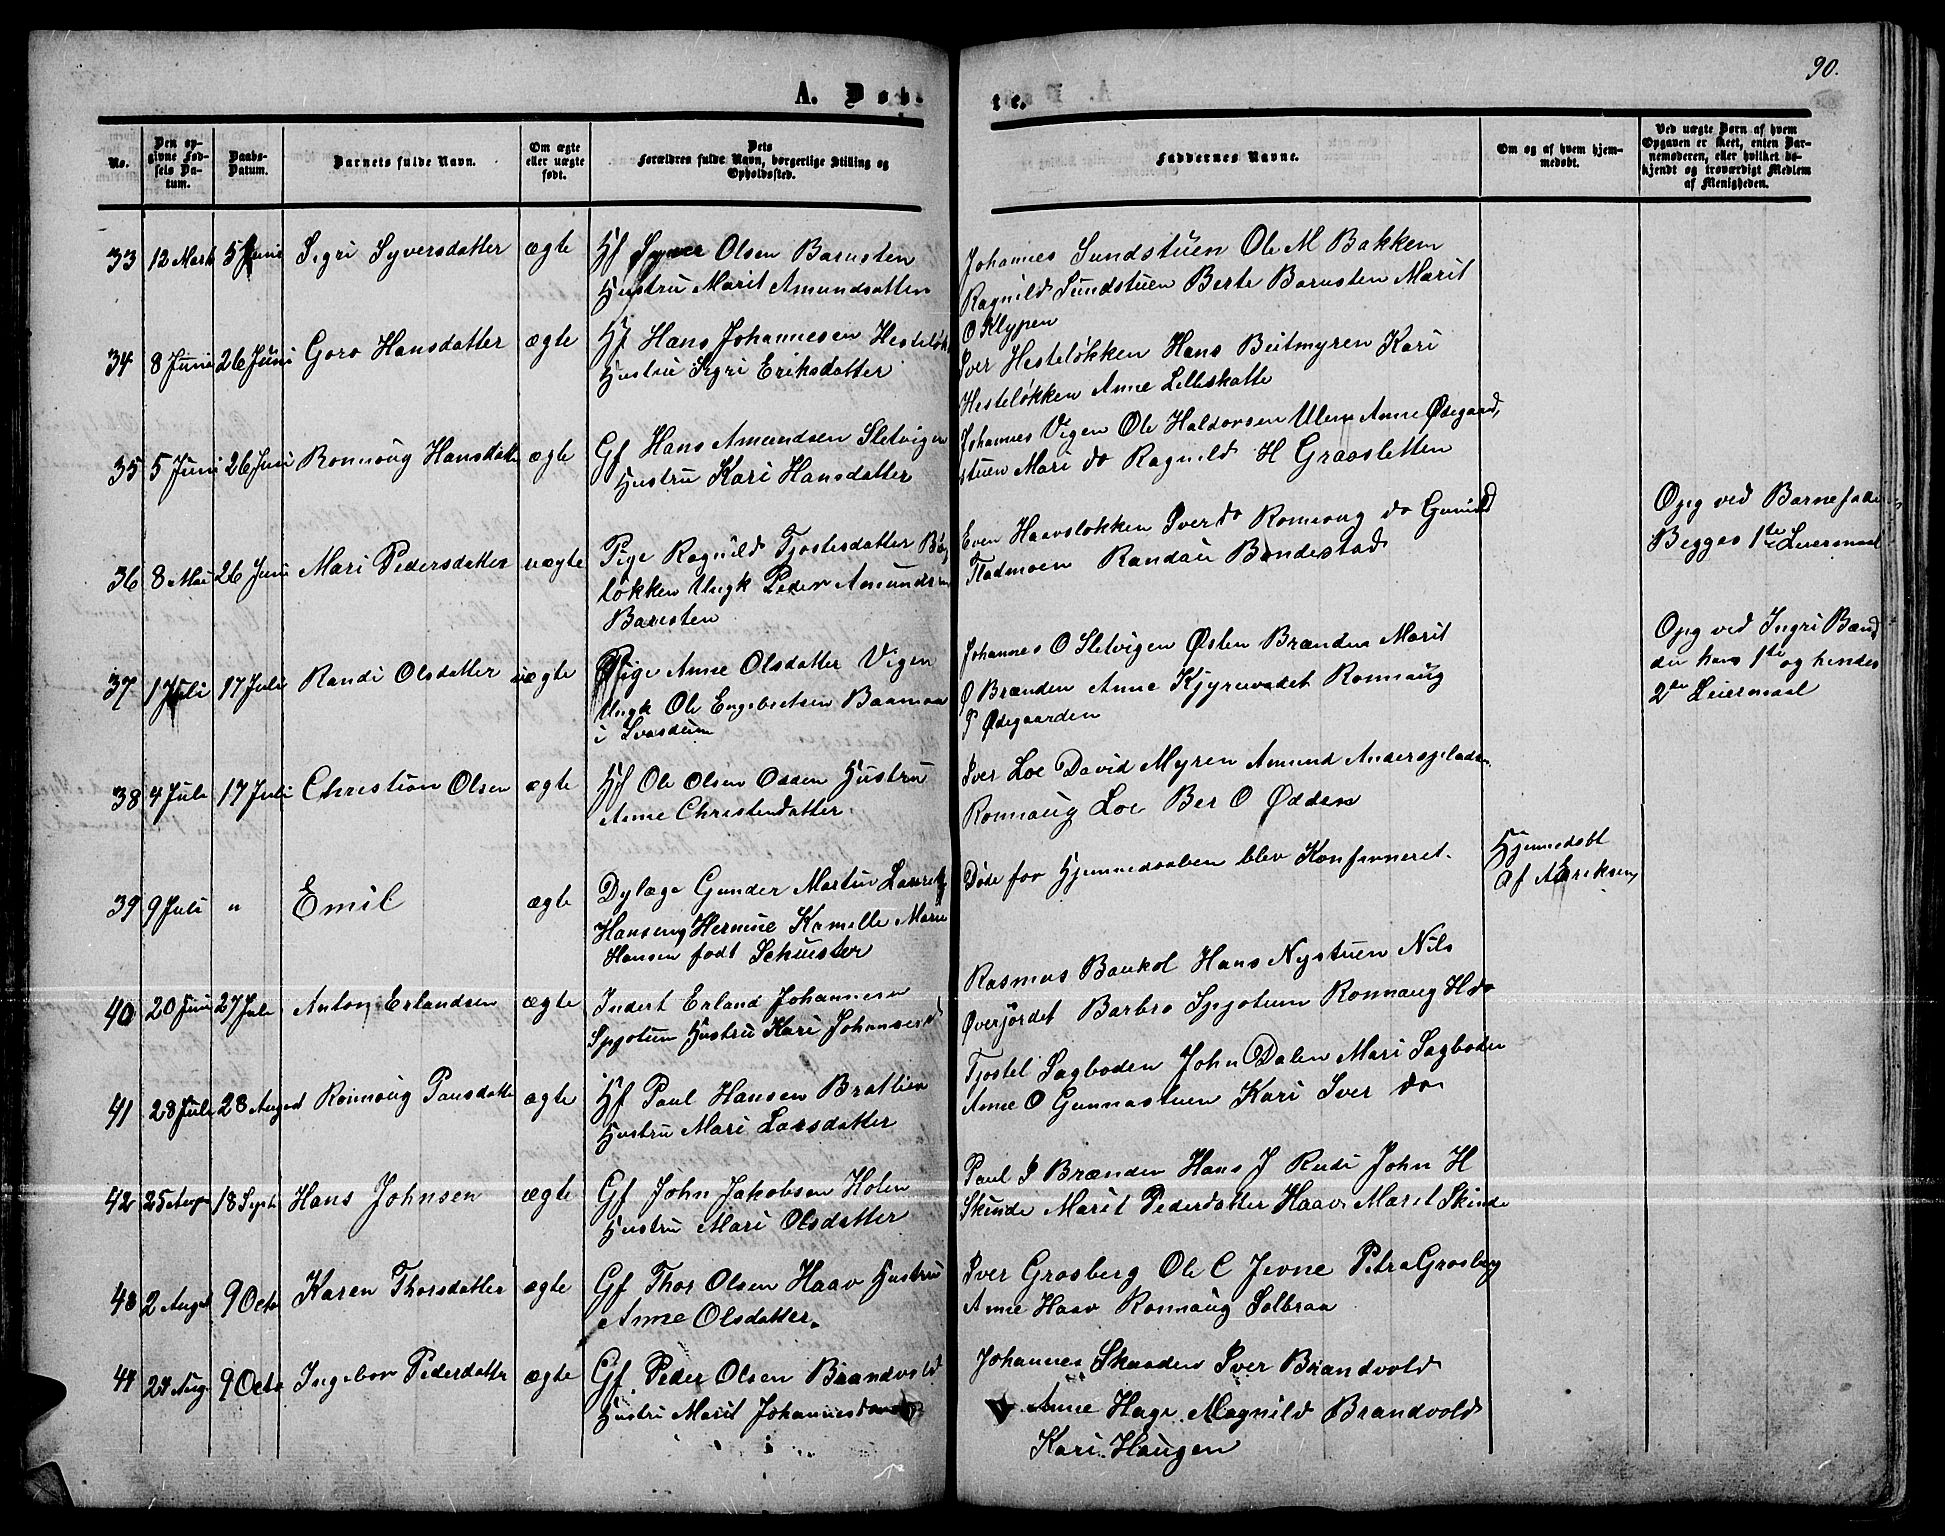 90.
A. Døb-
te.
No.
Den op-
givne Fød-
sels Da-
tum.
Daabs-
Datum.
Barnets fulde Navn.
Om ægte
eller uægte
født.
Dets
Forældres fulde Navn, borgerlige Stilling og
Opholdssted.
Faddernes Navne.
Om og af hvem hjem-
medøbt.
Ved uægte Børn af hvem
Opgaven er skeet, enten Bar-
nemoderen, eller hvilket be-
kjendt og troværdigt Medlem
af Menigheden.
33 12 Marts 5 Juni Sigri Syversdatter ægte Hf Syver Olsen Barusten
Hustru Marit Amundsdatter
Johannes Sundstuen Ole M Bakken
Ragnild Sundstuen Berte Barusten Marit
O Klypen
34 8 Juni 26 Juni Goro Hansdatter ægte Hf Hans Johannesen Hesteløk
Hustru Sigri Eriksdatter
Iver Hesteløkken Hans Beitmyren Kari
Hesteløkken Anne Lilleskatte
35 5 Juni 26 Juni Ronnoug Hansdatte ægte Gf Hans Amundsen Sletvigen
Hustru Kari Hansdatter
Johannes Vigen Ole Haldorsen Ulen Anne Ødegaard
stuen Mari do Ragnild H Graasletten
36 8 Mai 26 Juni Mari Pedersdatter uægte Pige Ragnild Tjostesdatter
løkken Ungk Peder Amundsen
Barusten
Even Haavsløkken Iver do Romoug do Gunild
Fladmoen Randai Bondestad
Opg ved Barnefade
Begges 1ste Leiermaal
37 1 Juli 17 Juli Randi Olsdatter uægte Pige Anne Olsdatter Vigen
Ungk Ole Engebretsen Baamoe
i Svasdum
Johannes O Sletvigen Østen Brænden Marit
O Brænden Anne Kjyruvødet Ronnaug
P Ødegaarden
Opg ved Ingri Bænd
den hans 1ste og hendes
2den Leiermaal
38 4 Juli 17 Juli Christian Olsen ægte Hf Ole Olsen Odden Hustru
Anne Christensdatter.
Iver Loe David Myren Amund Andersplads
Ronnaug Loe Ber O Ødden
39 9 Juli " Emil ægte Dylæge Gunder Martin Lauretz
Hansen og Hermine Kamelle Marie
Hansen født Schuster
Døde før Hjemmedaaben blev Konfirmeret.
Hjemmedøbt
af A Eriksen
40 20 Juni 27 Juli Anton Erlandsen ægte Inderst Erland Johannesen
Spjotum Hustru Kari Johansend
Rasmus Baukol Hans Nystuen Nils
Øverjordet Barbro Spjotum Ronnaug H do
41 28 Juli 28 August Ronnoug Paulsdatte ægte Hf Paul Hansen Bratlien
Hustru Mari Larsdatter
Tjostel Sagboden John Dalen Mari Sagboden
Anne O Gunnastuen Kari Iver do
42 25 Aug 18 Sept Hans Johnsen ægte Gf John Jakobsen Holen
Hustru Mari Olsdatter
Paul P Brænden Hans J Rudi John H
Skinde Marit Pedersdatter Haav Maret Skinde
43 2 August 9 Octo Karen Thorsdatter ægte Gf Thor Olsen Haav Hustru
Anne Olsdatter.
Iver Grosberg Ole C Jevne Petra Grosberg
Anne Haav Ronnaug Solbraa
44 24 Aug 9 Octo Ingebor Pedersdatter ægte Gf Peder Olsen Brandvold
Hustru Marit Johannesda
Johannes Skaaden Iver Brandvold
Anne Hage Magnild Brandvold
Kari Haugen